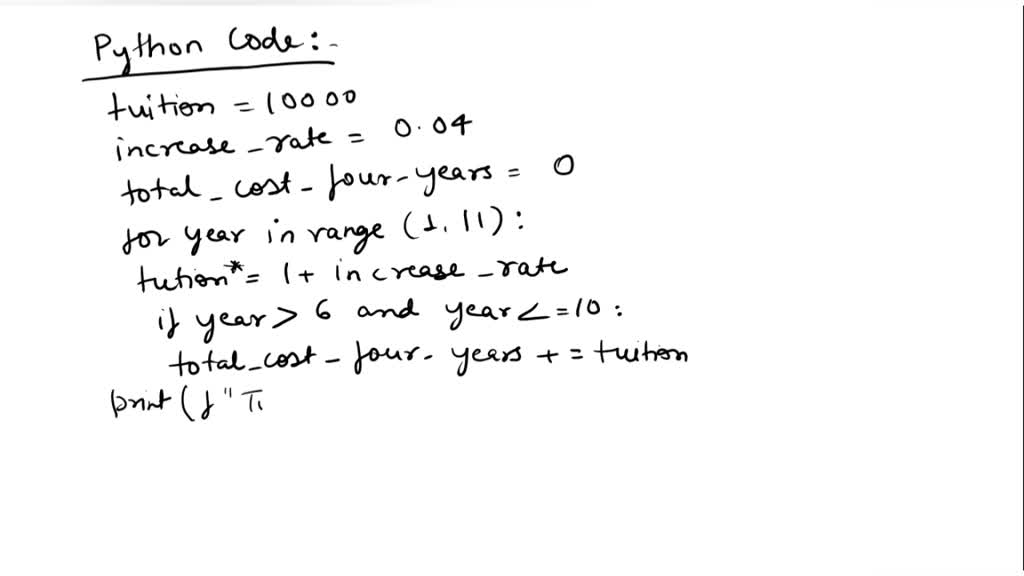 Python Code:-
tuition = 10000
increase_rate = 0.04
total_cost_four_years = 0
for year in range (1, 11):
tution *= 1 + increase_rate
if year > 6 and year <= 10:
total_cost_four_years += tuition
print (f "Ti